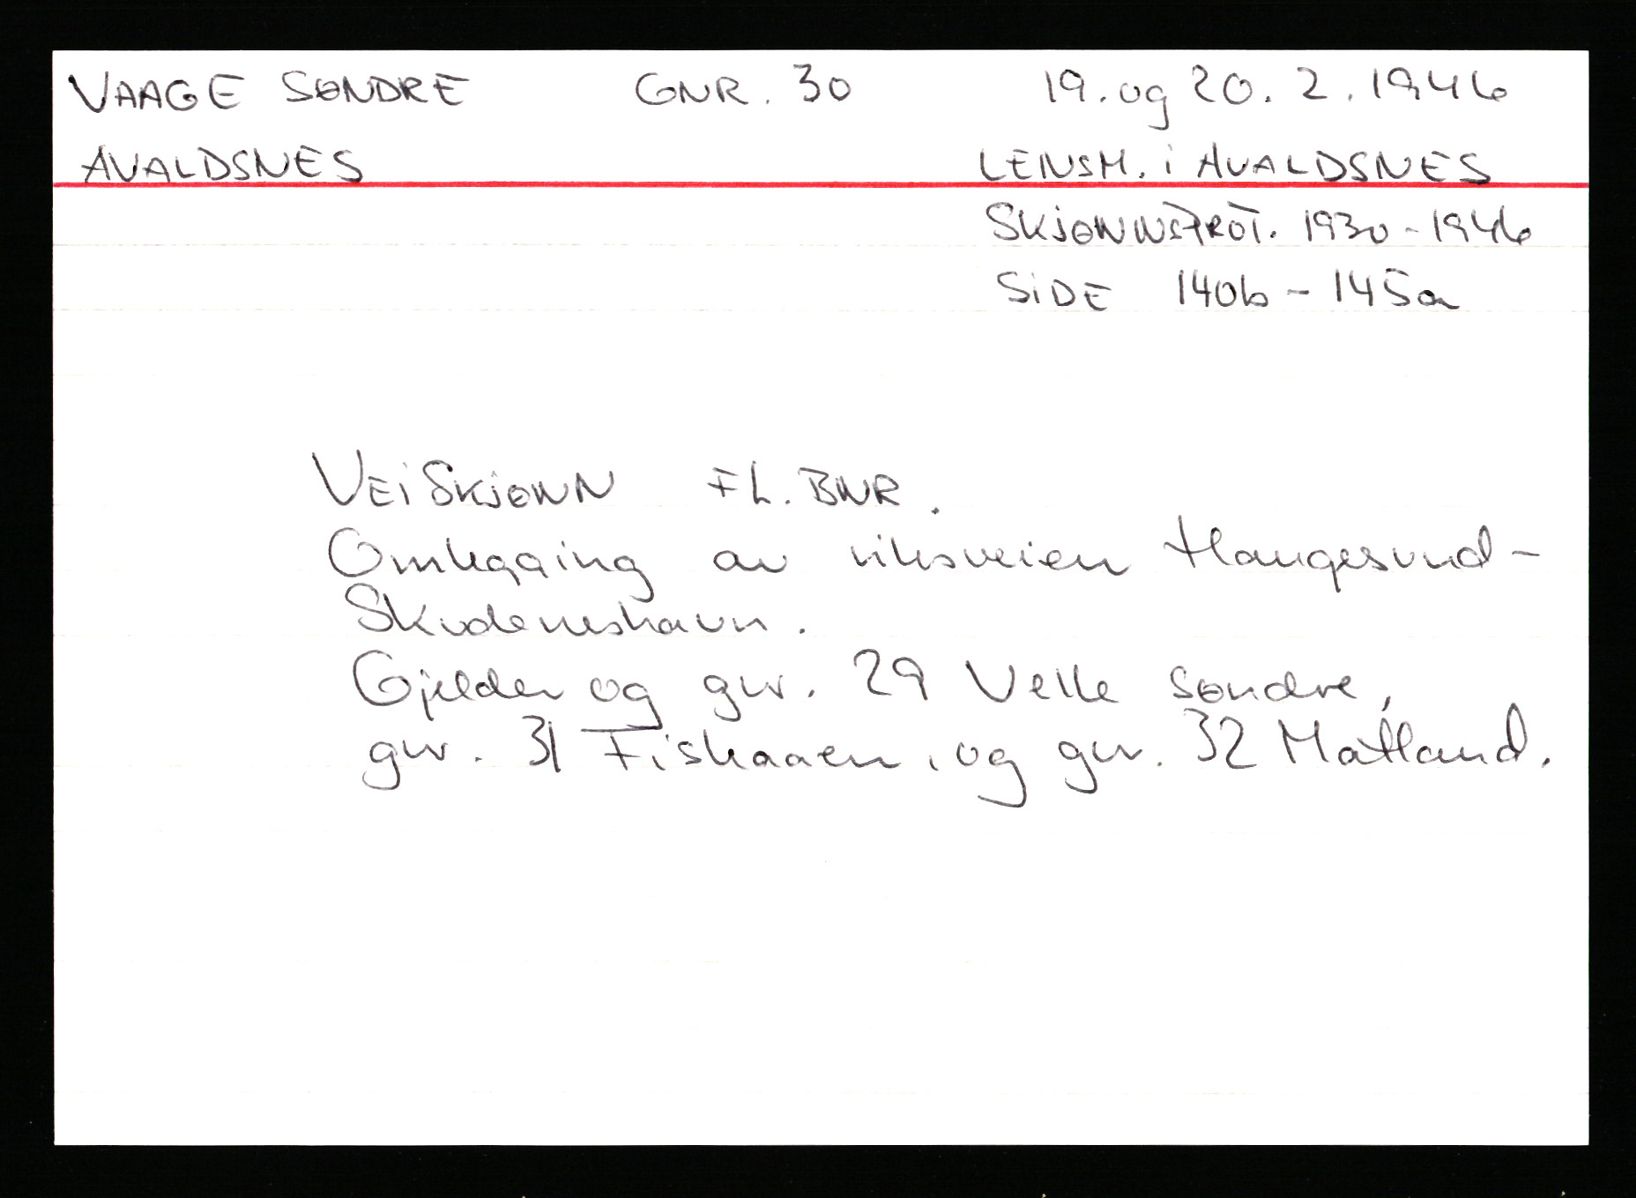 VAAGE SØNDRE GNR. 30 19. og 20. 2. 1946
AVALDSNES LENSM. i AVALDSNES
SKJØNNSPROT. 1930-1946
SIDE 140b - 145a
VEISKJØNN FL. BNR.
Omlegging av riksveien Haugesund-
Skudeneshavn.
Gjelder og gnr. 29 Velle søndre,
gnr. 31 Fiskaaen, og gnr. 32 Matland.